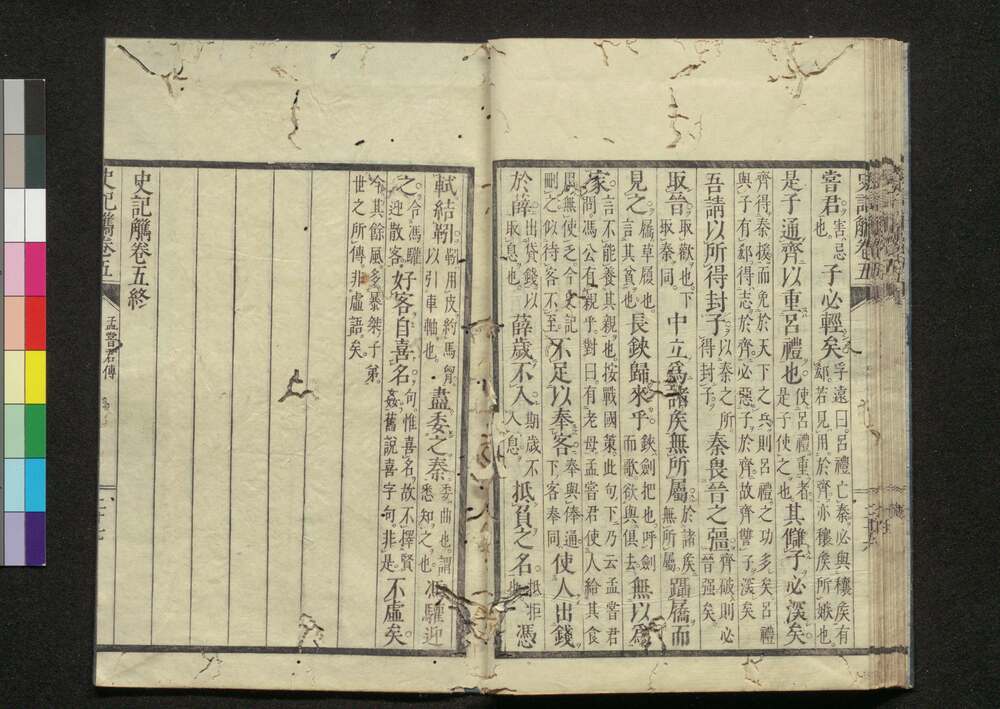 嘗君害忌也子必輕矣孚遠曰呂禮亡秦必與穰矦有郄若見用於齊亦穰矦所嫉也
是子通齊以重呂禮也使呂禮重者是子使之也其讎子必深矣
齊得秦援而免於天下之兵則呂禮之功多矣呂禮與子有郄得志於齊必惡子於齊故齊讐子深矣
吾請以所得封子以秦之所得封子秦畏晉之彊齊破則必晉强矣
取晉取歡也下取秦同中立爲諸矦無所屬於諸矦無所屬躡屩而
見之屩草履也言其貧也長鋏歸來乎鋏劍把也呼劍而歌欲與俱去無以爲
家言不能養其親也按戰國策此句下乃云孟嘗君問馮公有親乎對曰有老母孟嘗君使人給其食
用無使乏今史記刪之似待客不至不足以奉客奉與俸通下客奉同使人出錢
於薛出貸錢以取息也薛歲不入期歲不入息抵負之名抵拒也憑
軾結靷靷用皮約馬胷以引車軸也盡委之秦委曲也謂悉知之也馮驩迎
之令馮驩迎散客好客自喜名句惟喜名故不擇賢姦舊說喜字句非是不虛矣
今其餘風多暴桀子弟世之所傳非虛語矣
史記觿卷五終
史記觿卷五
孟嘗君傳